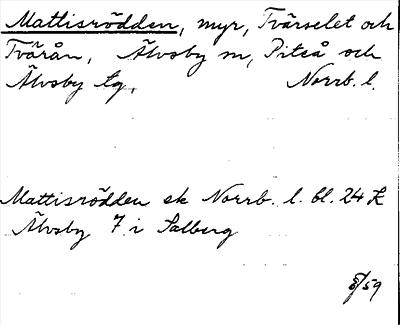 Mattisrödden, myr, Tvärselet och
Tvärån, Älvsby sn, Piteå och
Älvsby tg, Norrb. l.
Mattisrödden ek Norrb. l. bl. 24 K
Älvsby 7 i Salberg
/59